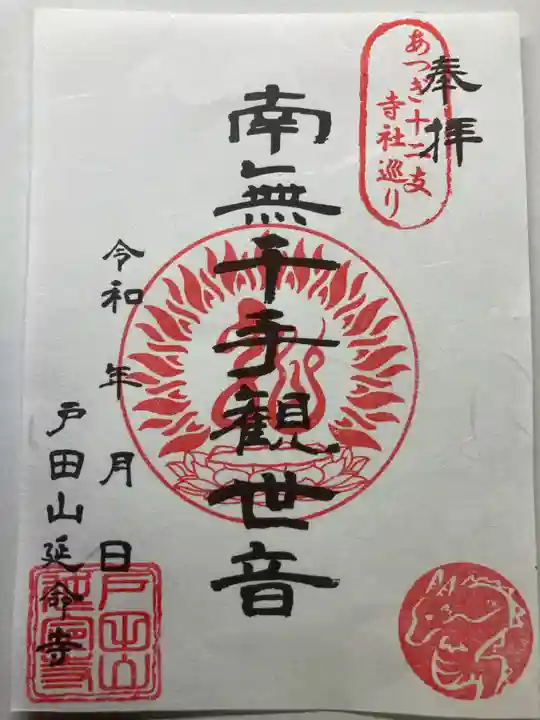 奉拝
あつぎ十二支
寺社巡り
南無千手観世音
令和 年 月 日
戸田山延命寺
戸田山
延命寺